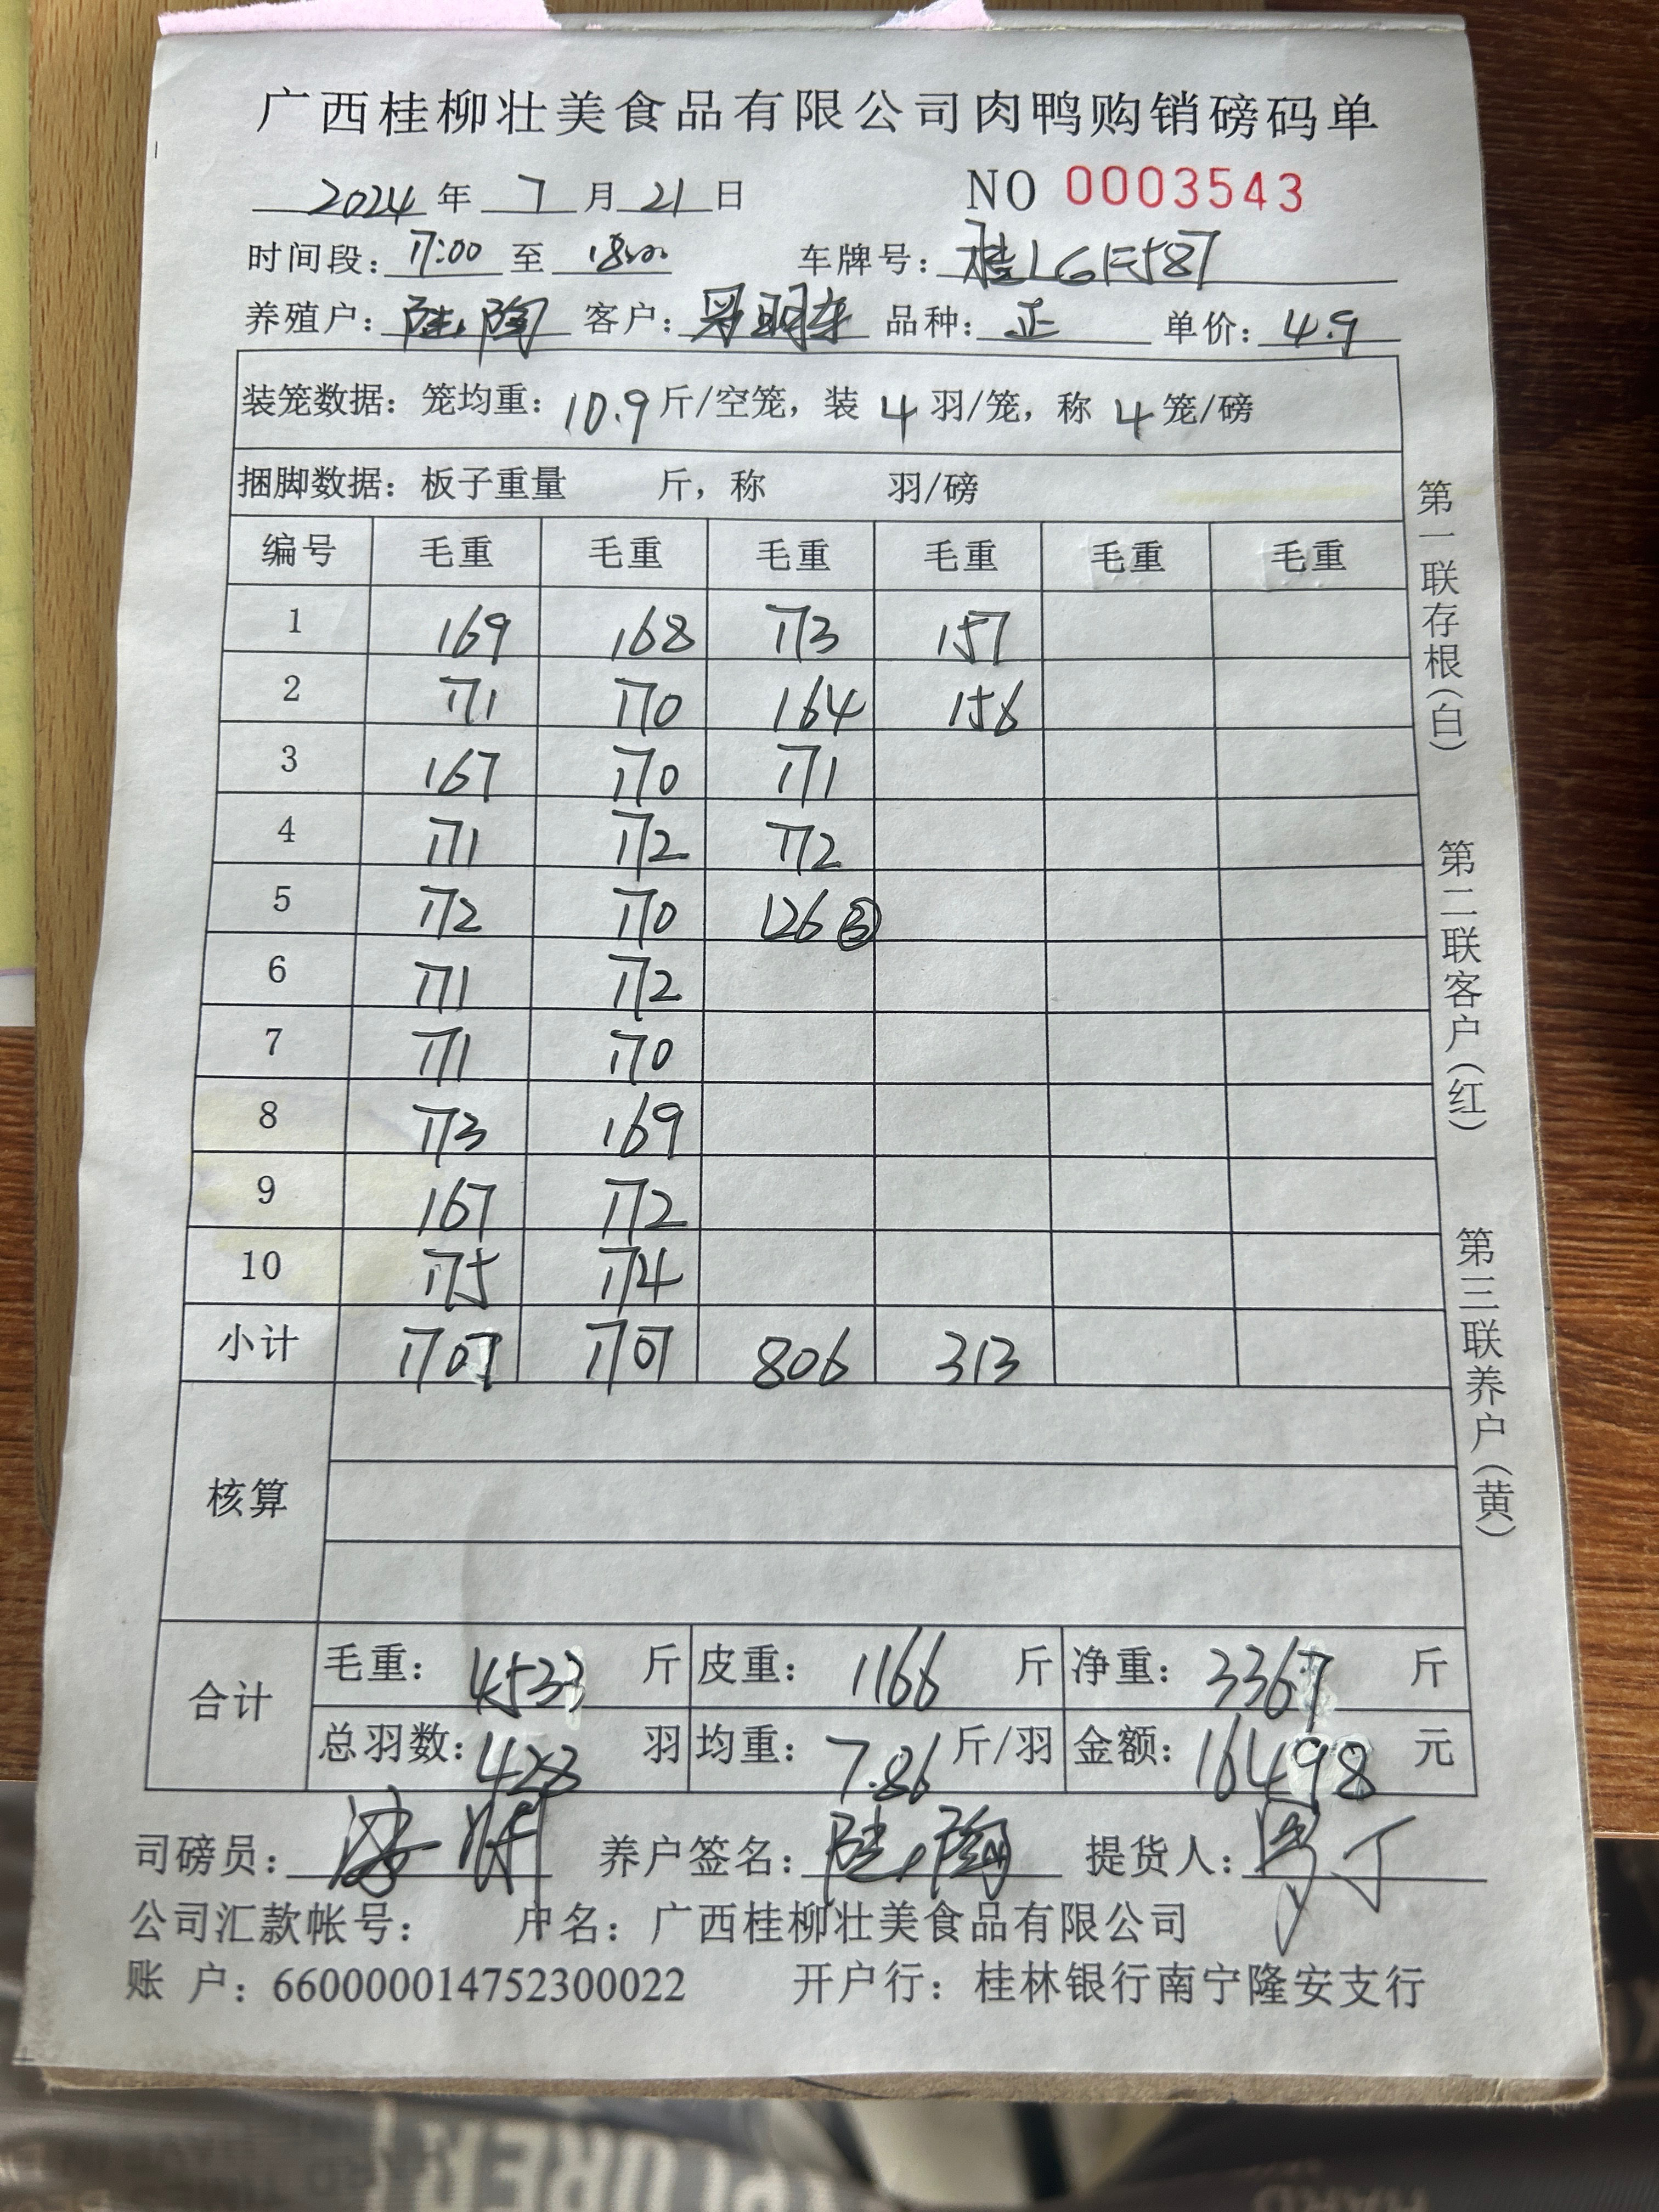 广西桂柳壮美食品有限公司肉鸭购销磅码单
2024 年 7 月 21 日 NO 0003543
时间段: 17:00 至 18:00 车牌号: 桂LGF587
养殖户: 陆陶 客户: 明东 品种: 正 单价: 4.9
装笼数据: 笼均重: 10.9 斤/空笼, 装 4 羽/笼, 称 4 笼/磅
捆脚数据: 板子重量 斤, 称 羽/磅
编号 毛重 毛重 毛重 毛重 毛重 毛重
1 169 168 173 157
2 171 170 164 156
3 167 170 171
4 171 172 172
5 172 170 126 ③
6 171 172
7 171 170
8 173 169
9 167 172
10 175 174
小计 1707 1707 806 313
核算
合计
毛重: 4533 斤 皮重: 1166 斤 净重: 3367 斤
总羽数: 428 羽 均重: 7.86 斤/羽 金额: 16498 元
司磅员: 养户签名: 陆陶 提货人:
公司汇款帐号: 户名: 广西桂柳壮美食品有限公司
账 户: 660000014752300022 开户行: 桂林银行南宁隆安支行
第一联存根(白)
第二联客户(红)
第三联养户(黄)